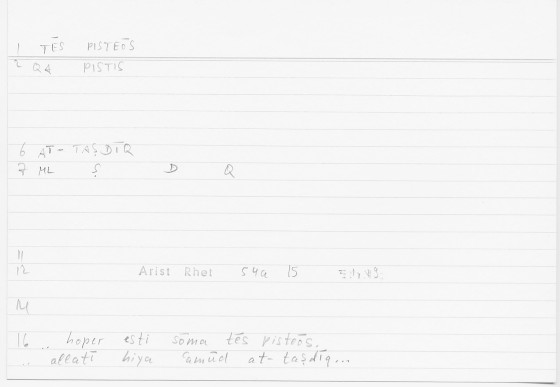 1 TĒS PISTEŌS
2 QA PISTIS
6 AT-TAṢDĪQ
7 ML Ṣ D Q
11
12 Arist Rhet 54a 15
M
16 .. hoper esti sōma tēs pisteōs.
.. allatī hiya ʿamūd at-taṣdīq...